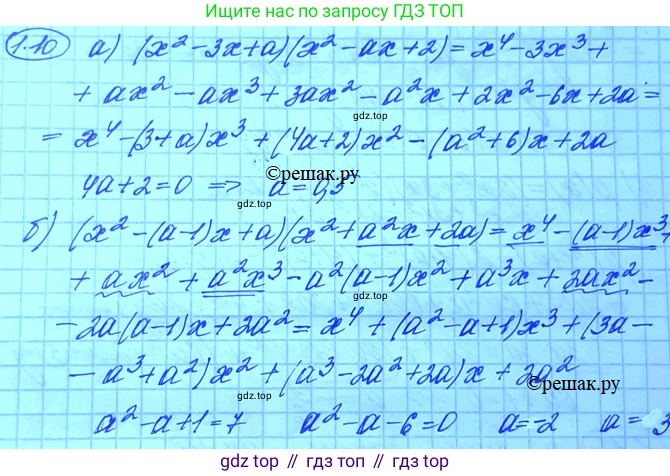 Всё есть в поиске по запросу ГДЗ ТОП
1.10 а) (x² - 3x + a)(x² - ax + 2) = x⁴ - 3x³ +
+ ax² - ax³ + 3ax² - a²x + 2x² - 6x + 2a =
= x⁴ - (3 + a)x³ + (4a + 2)x² - (a² + 6)x + 2a
©решак.ру
4a + 2 = 0 => a =
gdz.top
б) (x² - (a-1)x + a)(x² + a²x + 2a) = x⁴ - (a-1)x³ +
+ ax² + a²x³ - a²(a-1)x² + a³x + 2ax² -
- 2a(a-1)x + 2a² = x⁴ + (a² - a + 1)x³ + (3a -
gdz.top
- a³ + a²)x² + (a³ - 2a² + 2a)x + 2a²
©решак.ру
a² - a + 1 = 7 a² - a - 6 = 0 a = -2 a = 3
gdz top // гдз топ // gdz.top // гдз.топ